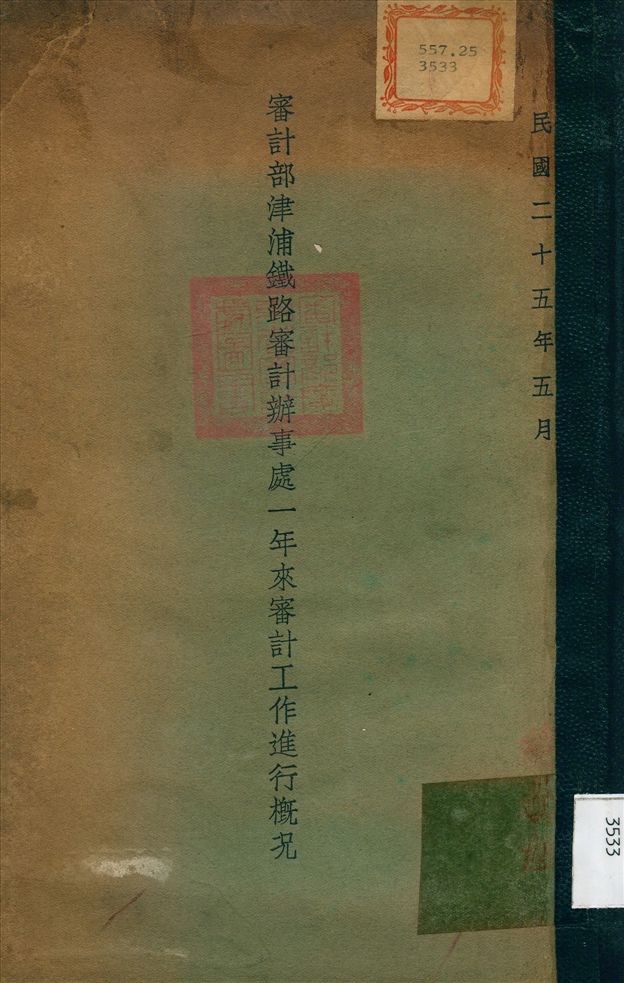 557.25
3533
民國二十五年五月
審計部津浦鐵路審計辦事處一年來審計工作進行概况
3533